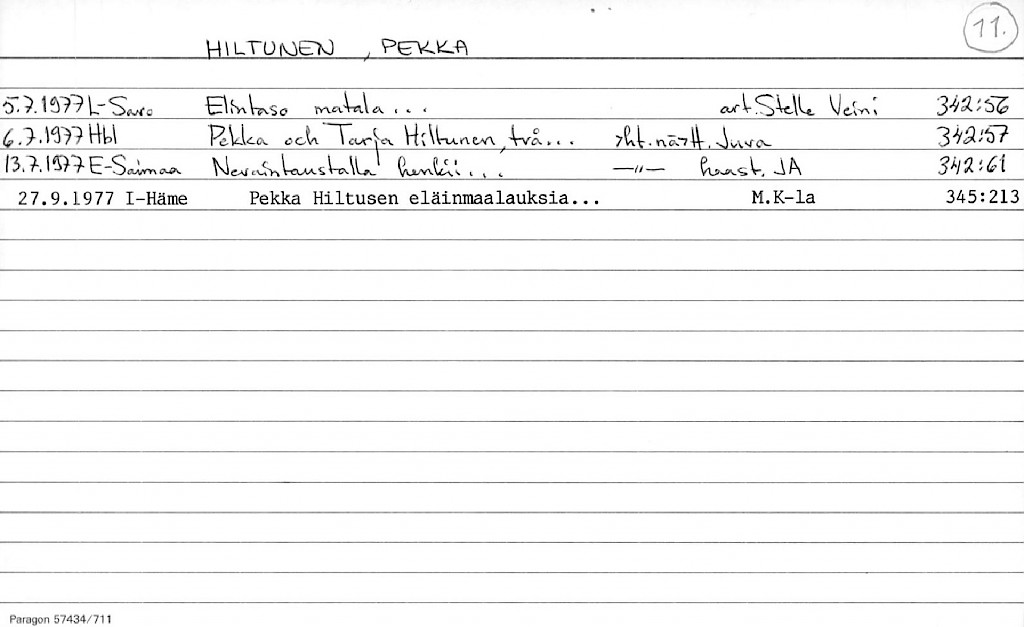 11.
HILTUNEN, PEKKA
5.7.1977 L-Savo Elintaso matala... art. Stelle Veini 342:56
6.7.1977 Hbl Pekka och Tarja Hiltunen, två... yht.näytt. Juva 342:57
13.7.1977 E-Saimaa henkii... —"— haast. JA 342:61
27.9.1977 I-Häme Pekka Hiltusen eläinmaalauksia... M.K-la 345:213
Paragon 57434/711